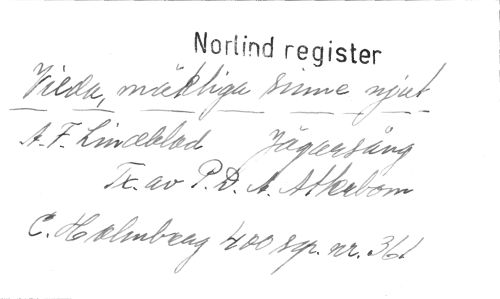 Norlind register
Vilda, mäktiga sinne njut
A. F. Lindblad Jägarsång
Tx. av P. D. A. Atterbom
C. Holmberg 400 sp. nr. 361